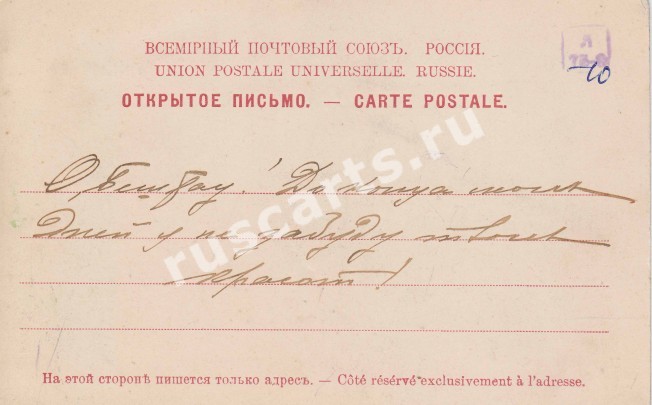 ВСЕМІРНЫЙ ПОЧТОВЫЙ СОЮЗЪ. РОССІЯ.
UNION POSTALE UNIVERSELLE. RUSSIE.
ОТКРЫТОЕ ПИСЬМО. — CARTE POSTALE.
Л
10
О Бештау! До конца моих
дней я не забуду твоих
красот!
ruscarts.ru
На этой сторонѣ пишется только адресъ. — Côté résérvé exclusivement à l'adresse.